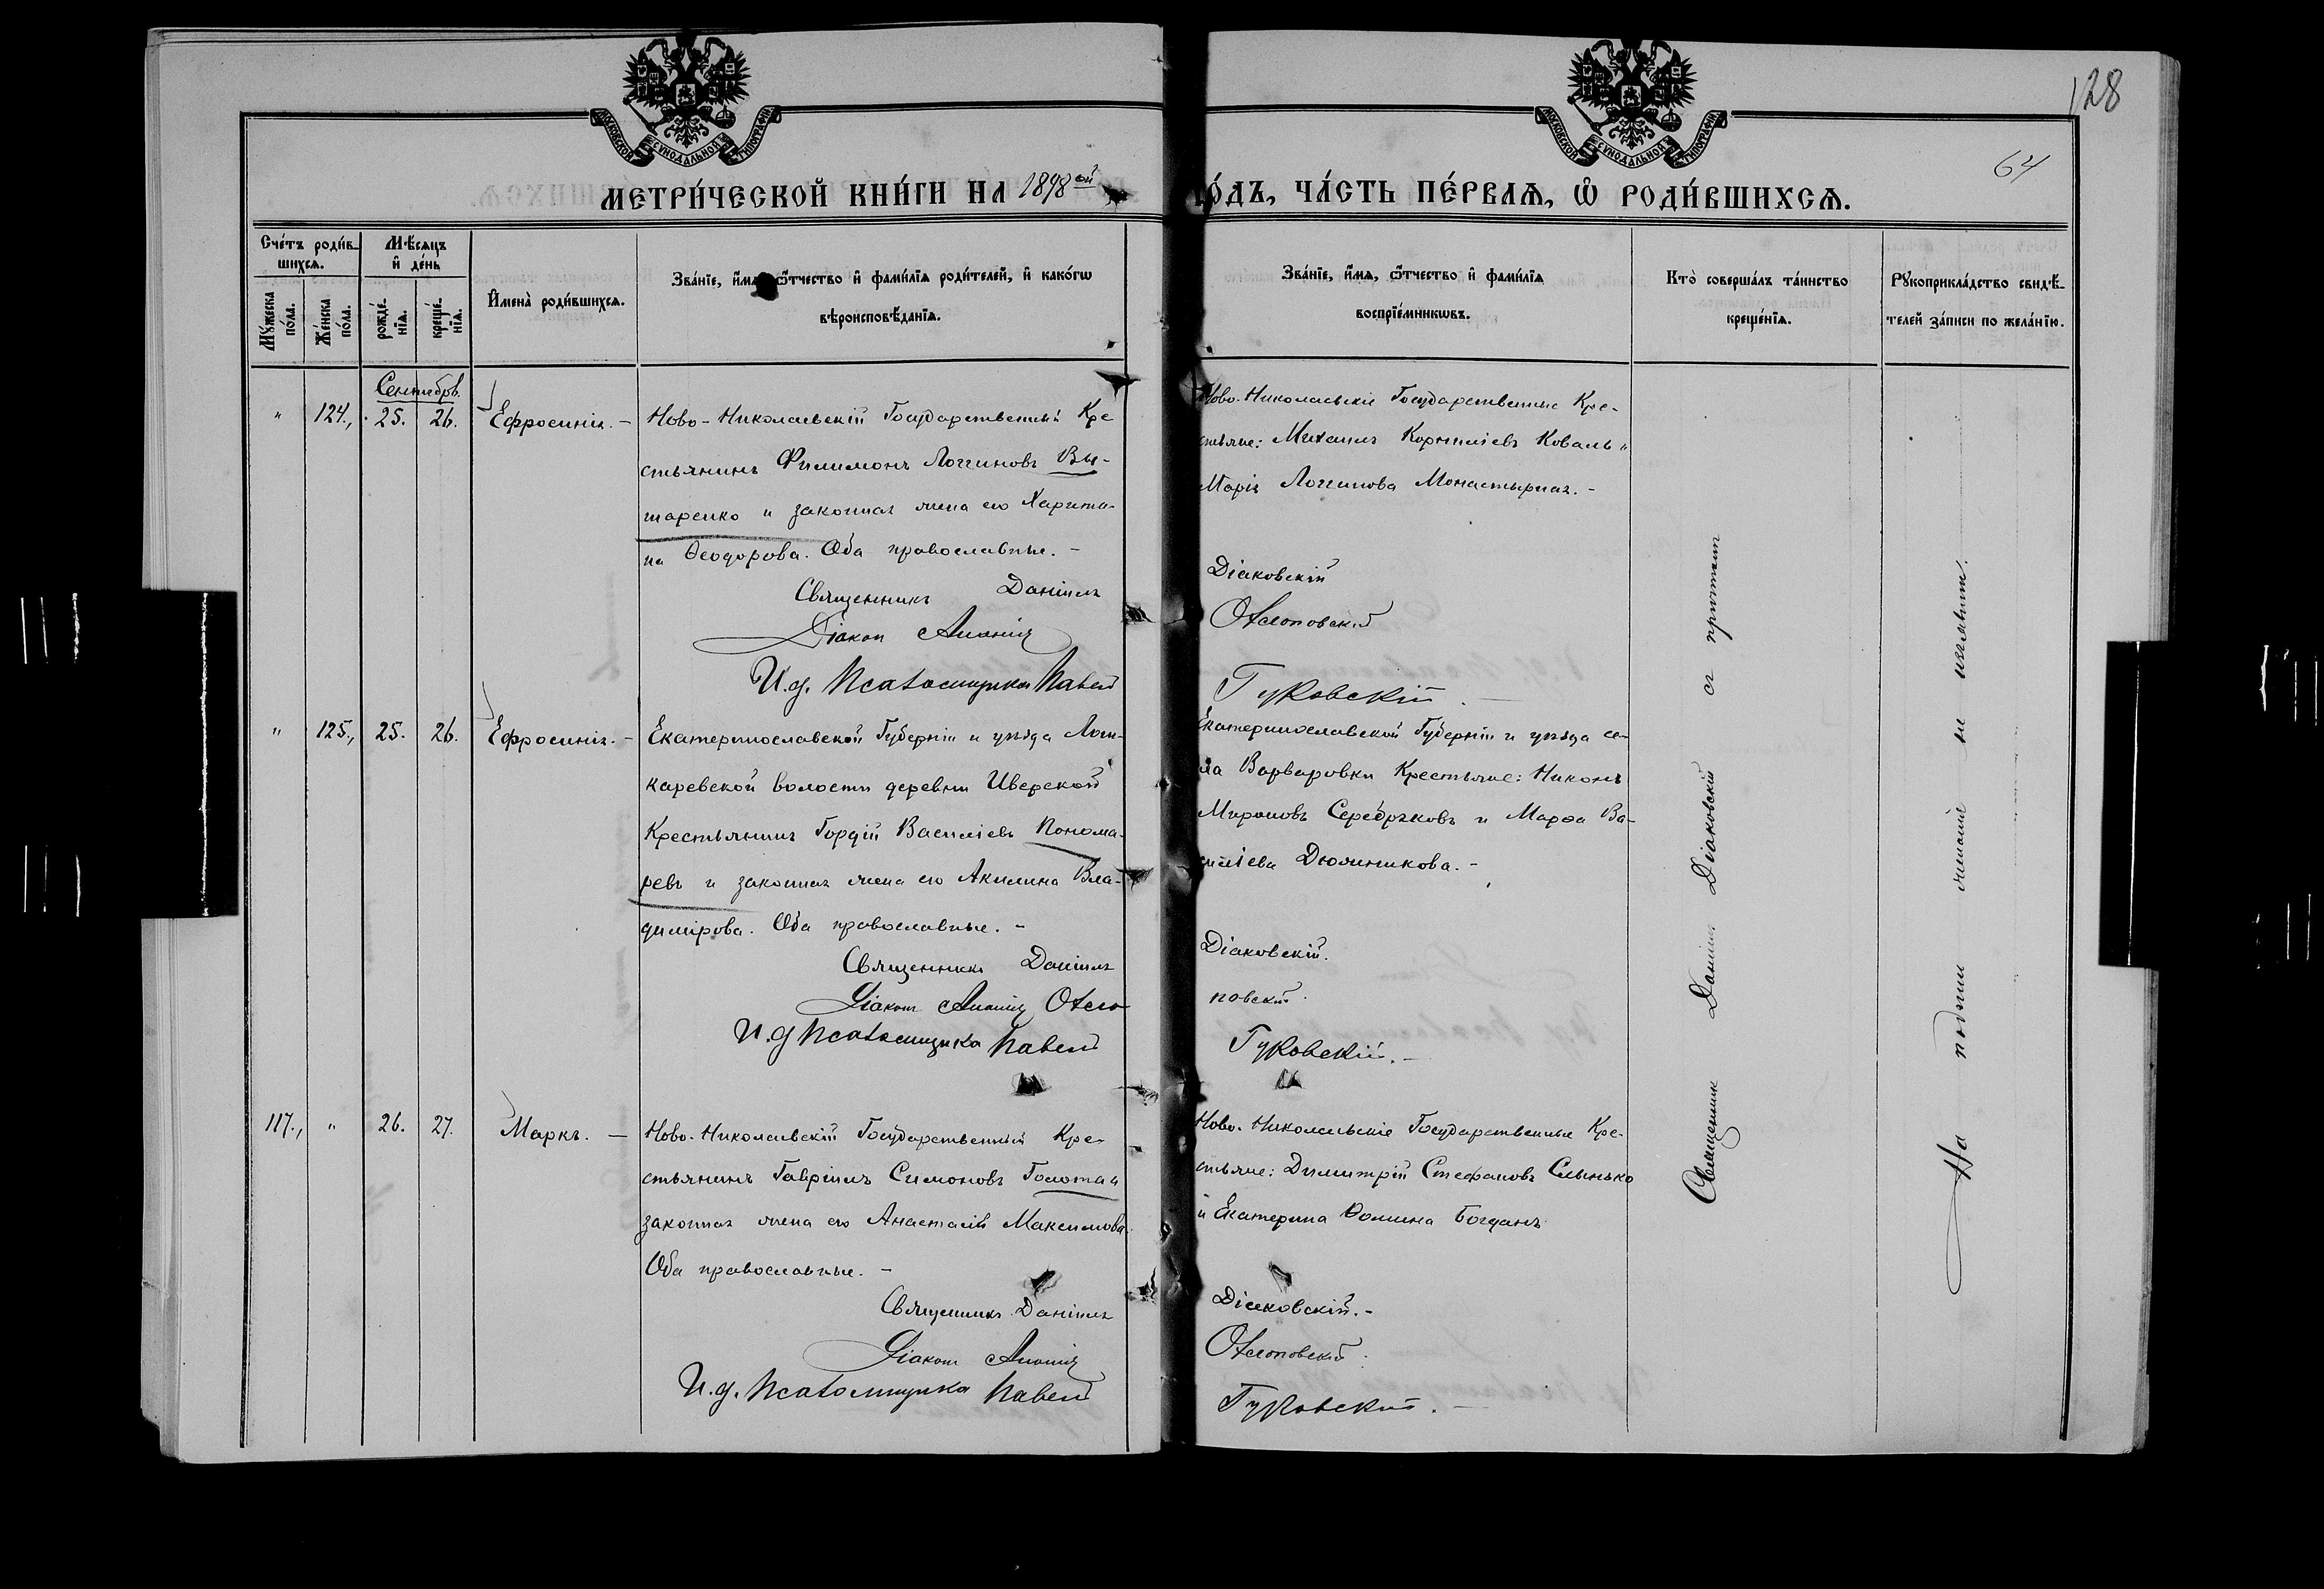 128
64
МОСКОВСКОЙ СѴНОДАЛЬНОЙ ТИПОГРАФІИ
МОСКОВСКОЙ СѴНОДАЛЬНОЙ ТИПОГРАФІИ
МЕТРИ́ЧЕСКОЙ КНИ́ГИ НА 1898 ой
ГО́ДЪ, ЧА́СТЬ ПЕ́РВАѦ, Ѡ҆ РОДИ́ВШИХСѦ.
Сче́тъ роди́в-
шихсѧ.
Мꙋ́жеска
по́ла.
Же́нска
по́ла.
Мѣ́сѧцъ
и҆ де́нь
рожде́-
нїѧ.
креще́-
нїѧ.
И҆мена̀ роди́вшихсѧ.
Зва́нїе, и҆́мѧ, ѻ҆́тчество и҆ фами́лїѧ роди́телей, и҆ како́гѡ
вѣроисповѣ́данїѧ.
Зва́нїе, и҆́мѧ, ѻ҆́тчество и҆ фами́лїѧ
воспрїе́мникѡвъ.
Кто̀ соверша́лъ та́инство
креще́нїѧ.
Рꙋкоприкла́дство свидѣ́-
телей за́писи по жела́нїю.
Сентябрь.
" 124., 25. 26. Ефросинія. –
Ново-Николаевскій Государственный Кре-
стьянинъ Филимонъ Логгиновъ Вы-
таренко и законная жена его Харити-
на Ѳеодорова. Оба православные. –
Священникъ Даніилъ
Діаконъ Ананія
И.д. Псаломщика Павелъ
Ново-Николаевскіе Государственные Кре-
стьяне: Михаилъ Корниліевъ Коваль и
Марія Логгинова Монастырная. –
Діаковскій
Гуковскій. –
" 125., 25. 26. Ефросинія. –
Екатеринославской Губерніи и уѣзда Лош-
каревской волости деревни Иверской
Крестьянинъ Гордій Василіевъ Понома-
ревъ и законная жена его Акилина Вла-
димірова. Оба православные. –
Священникъ Даніилъ
Діаконъ Ананія
И.д. Псаломщика Павелъ
Екатеринославской Губерніи и уѣзда се-
ла Варваровки Крестьяне: Никонъ
Мироновъ Серебряковъ и Марѳа Ва-
силіева Дюжникова. –
Діаковскій.
повскій.
Гуковскій. –
117., " 26. 27. Маркъ. –
Ново-Николаевскій Государственный Кре-
стьянинъ Гавріилъ Симоновъ Голота и
законная жена его Анастасія Максимова.
Оба православные. –
Священникъ Даніилъ
Діаконъ Ананія
И.д. Псаломщика Павелъ
Ново-Николаевскіе Государственные Кре-
стьяне: Димитрій Стефановъ Слынько
и Екатерина Ѳомина Богданъ
Діаковскій. –
Гуковскій. –
Священникъ Даніилъ Діаковскій съ причтомъ
На подпись желанія не изъявили.